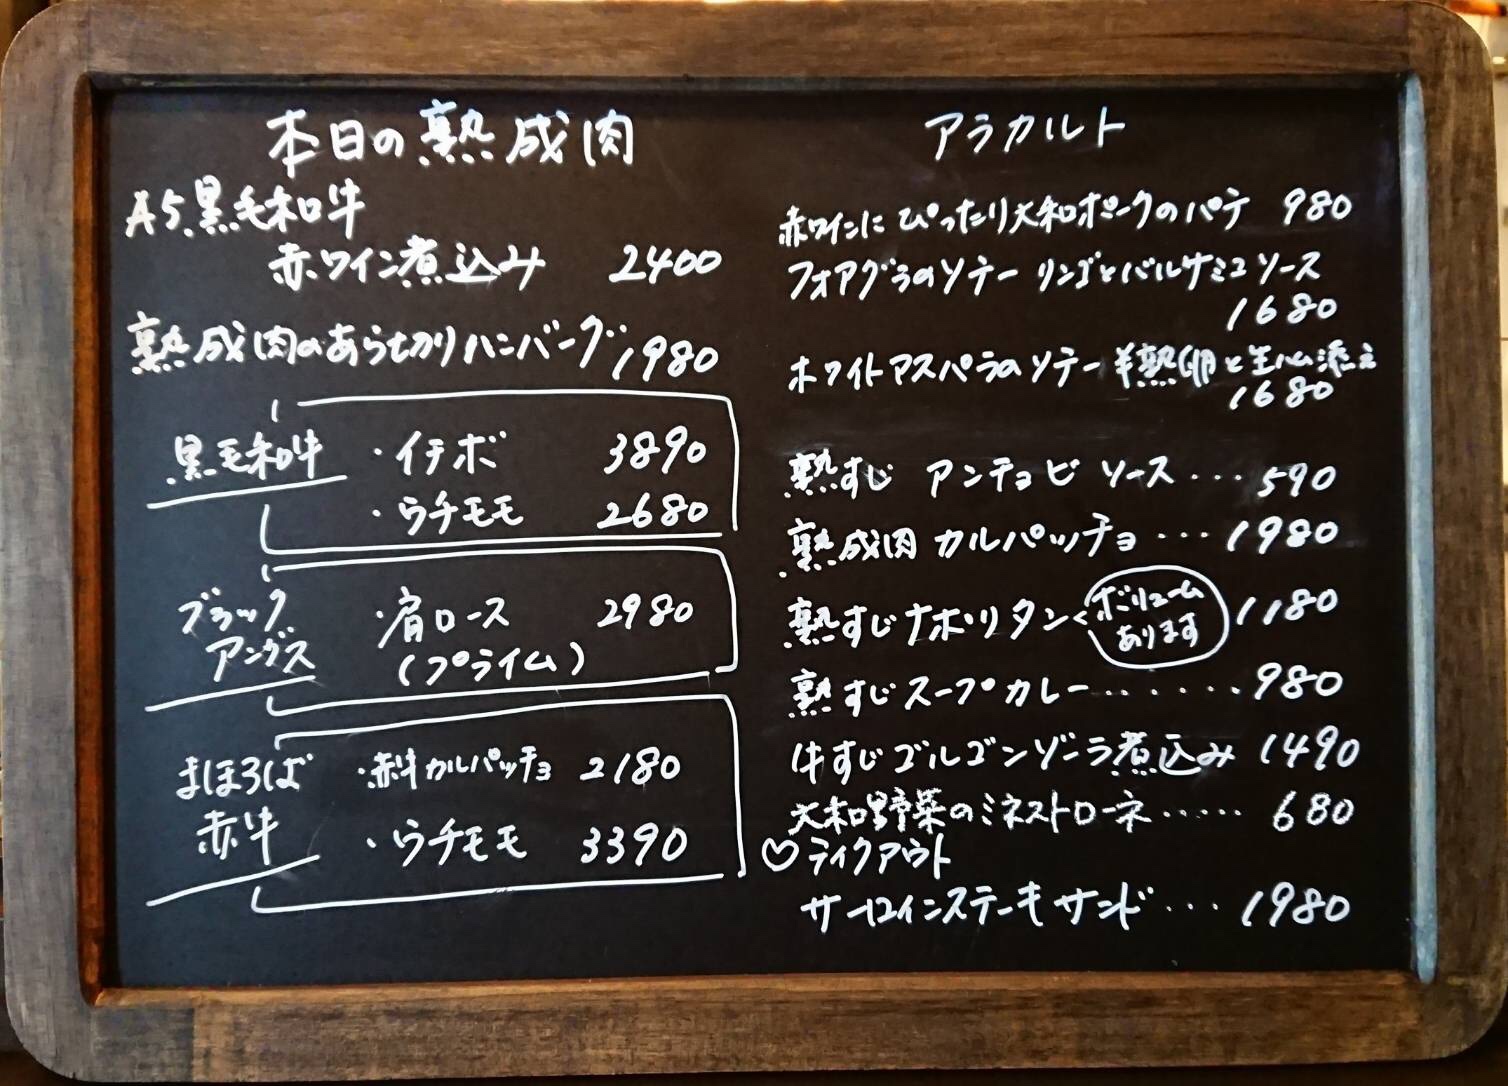 本日の熟成肉
A5黒毛和牛
赤ワイン煮込み 2400
熟成肉のあら切りハンバーグ 1980
黒毛和牛 ・イチボ 3890
・ウチモモ 2680
ブラックアンガス ・肩ロース 2980
(プライム)
まほろば ・赤牛カルパッチョ 2180
赤牛 ・ウチモモ 3390
アラカルト
赤ワインにぴったり大和ポークのパテ 980
フォアグラのソテー リンゴとバルサミコソース
1680
ホワイトアスパラのソテー 半熟卵と生ハム添え
1680
熟すじ アンチョビソース・・・590
熟成肉カルパッチョ・・・1980
熟すじナポリタン 1180
ボリューム
あります
熟すじスープカレー・・・・・・・980
牛すじゴルゴンゾーラ煮込み 1490
大和野菜のミネストローネ・・・・・680
♡テイクアウト
サーロインステーキサンド・・・1980